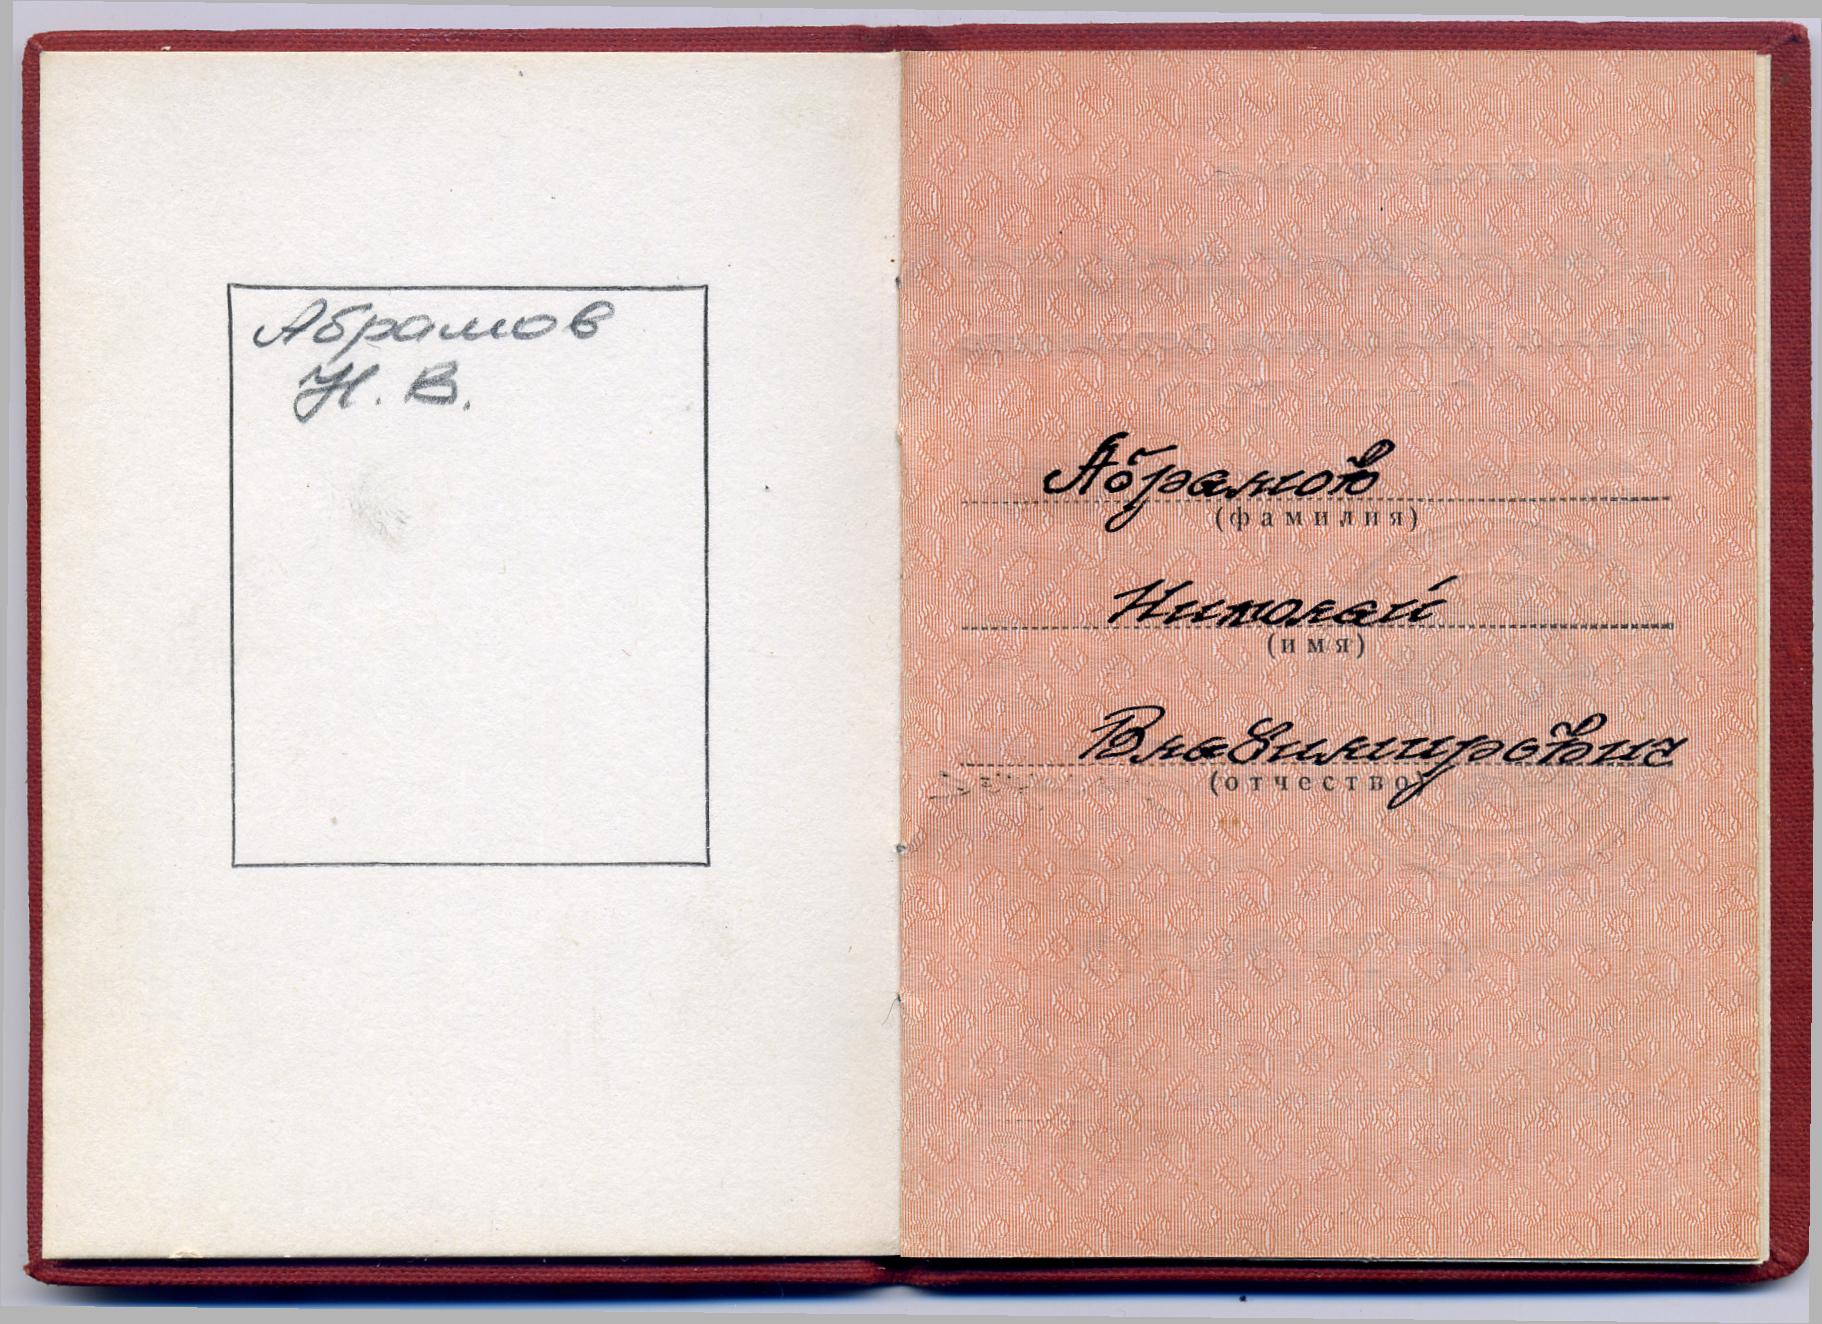 Абрамов
Н. В.
Абрамов
(фамилия)
Николай
(имя)
Владимирович
(отчество)